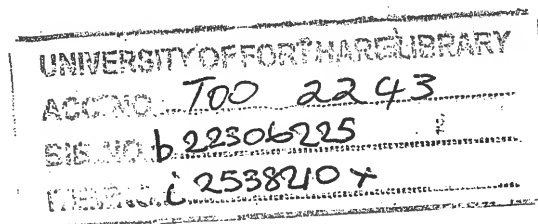 UNIVERSITY OF FORT HARE LIBRARY
ACC. NO.: T00 2243
BIB. NO. b 22306225
ITEM NO. i 2538210 x